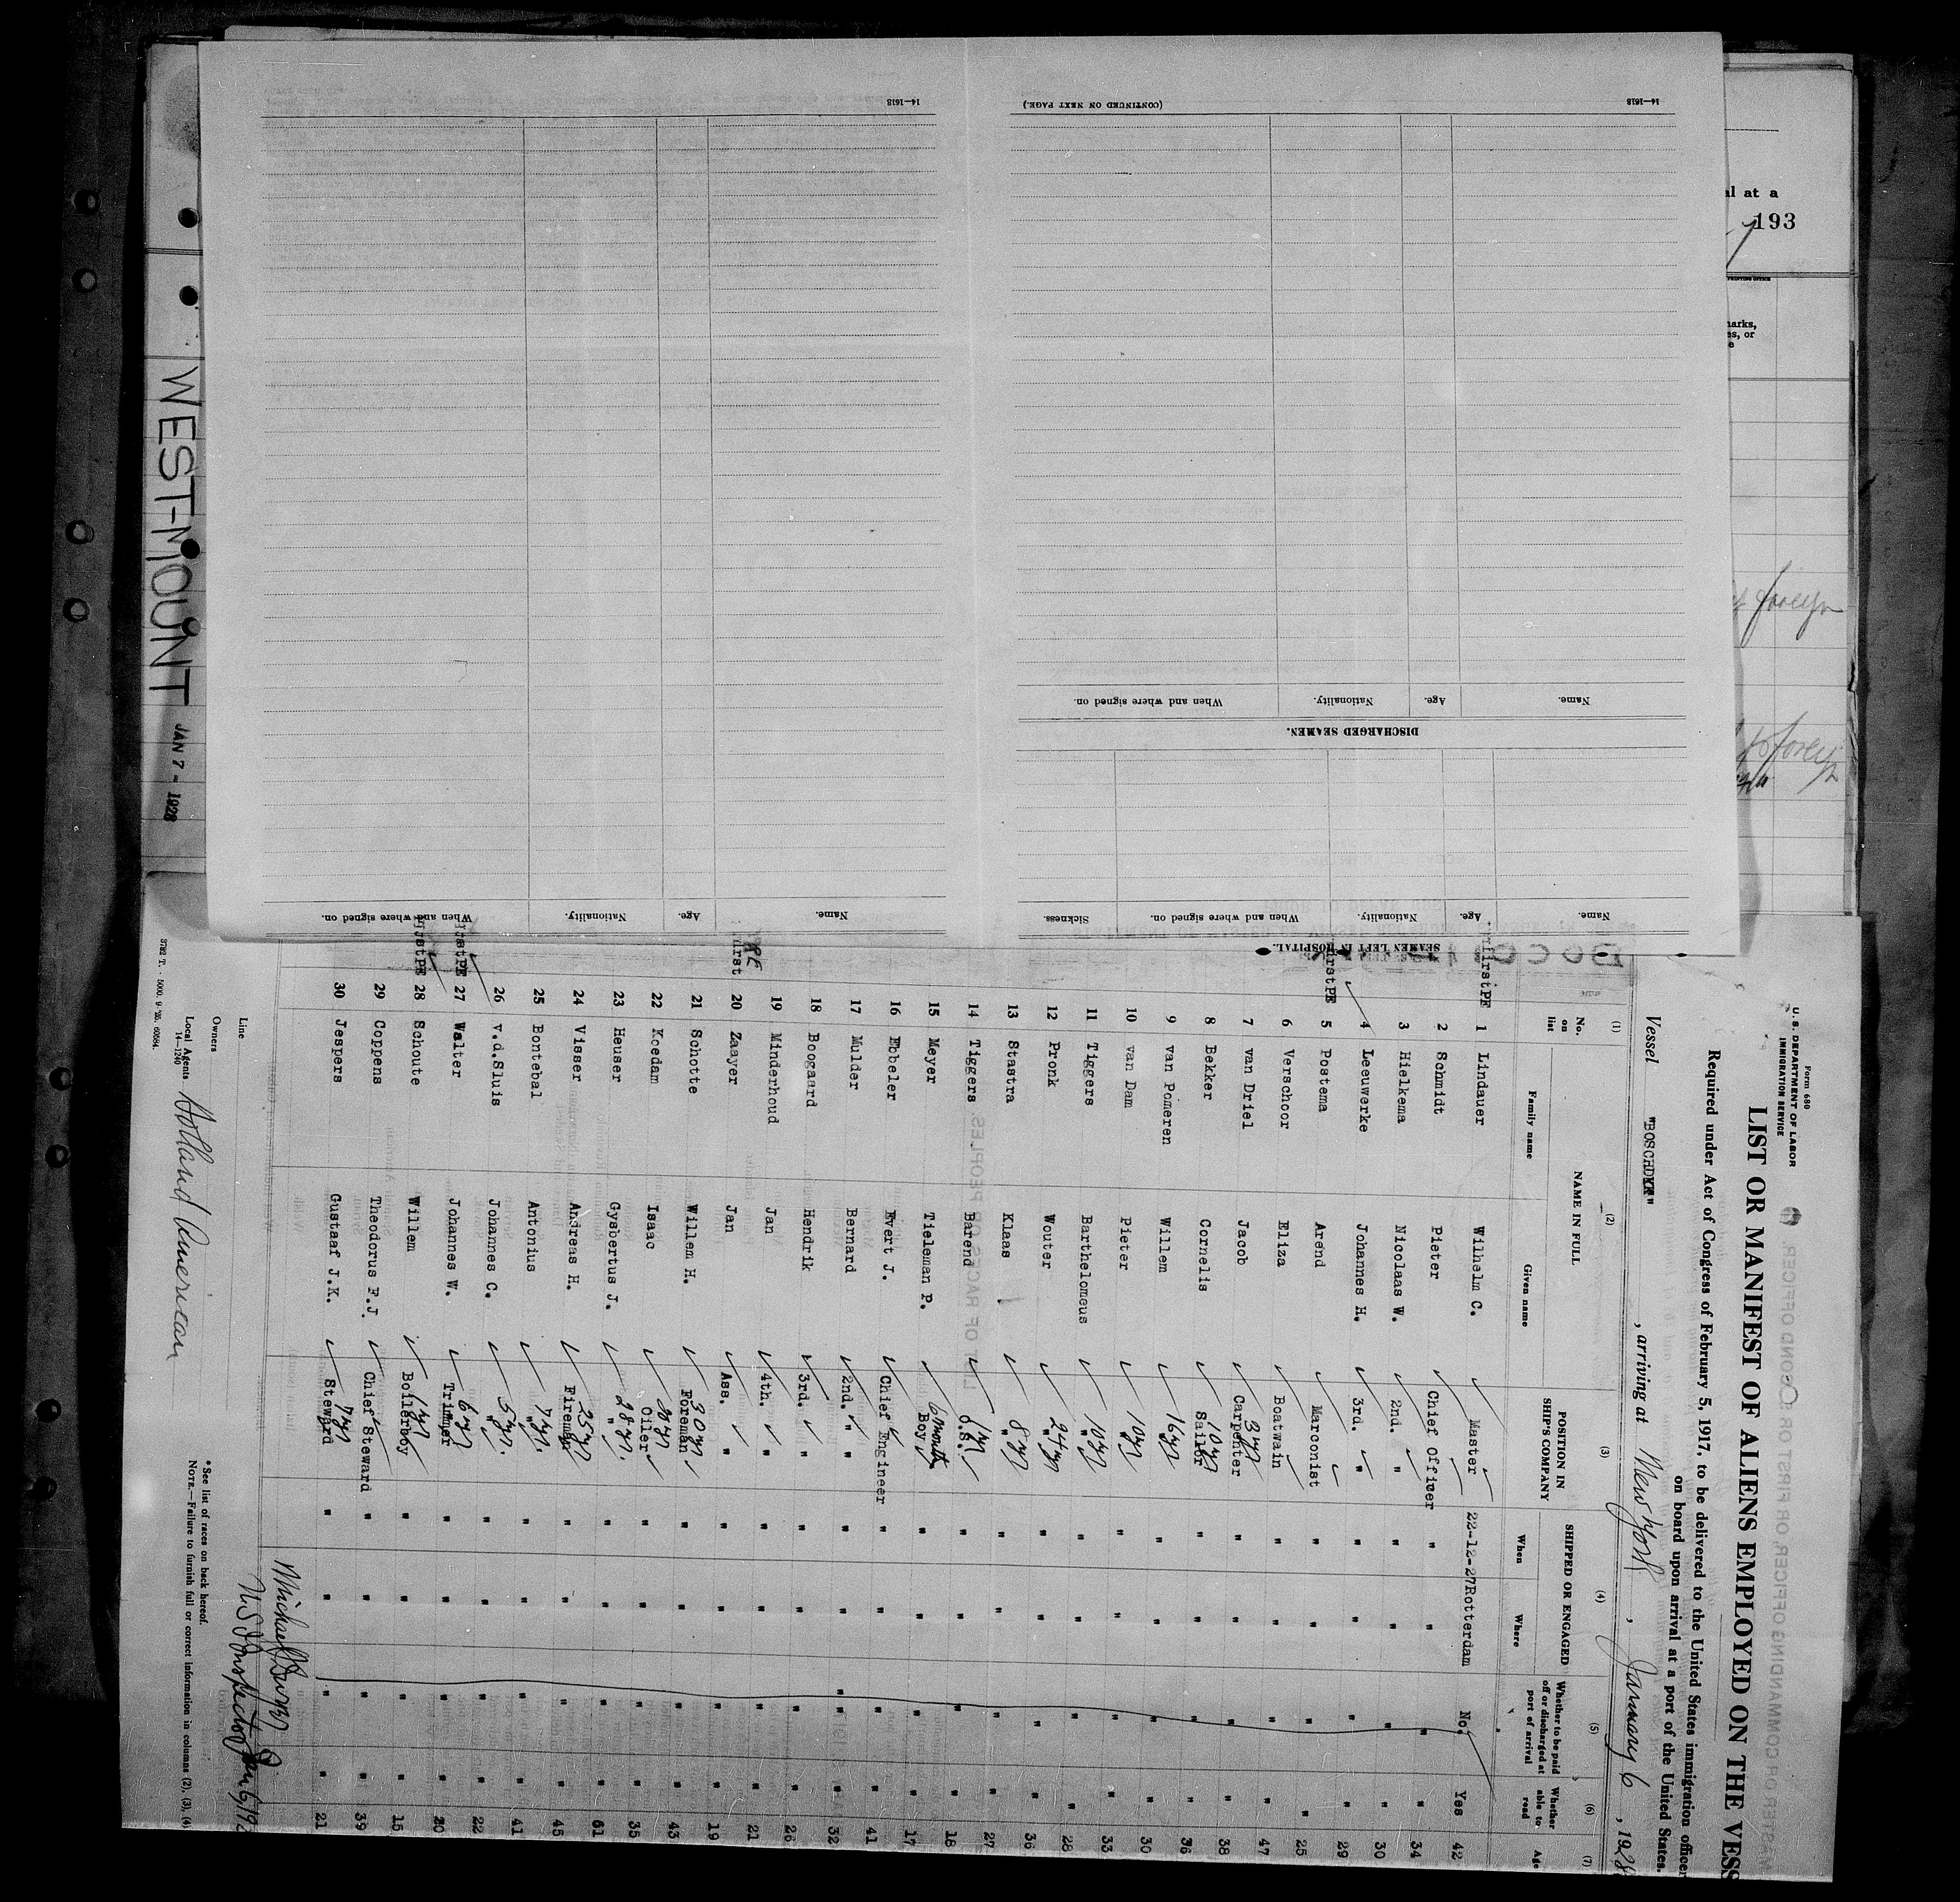 Form 680
U. S. DEPARTMENT OF LABOR
IMMIGRATION SERVICE
LIST OR MANIFEST OF ALIENS EMPLOYED ON THE VESS
Required under Act of Congress of February 5, 1917, to be delivered to the United States immigration officer
on board upon arrival at a port of the United States.
Vessel "BOSCHDYK" , arriving at New York , January 6 , 1928
(1) (2) (3) (4) (5) (6) (7)
No. on list NAME IN FULL Family name Given name POSITION IN SHIP'S COMPANY SHIPPED OR ENGAGED When Where Whether to be paid off or discharged at port of arrival Whether able to read Age
first PE 1 Lindauer Wilhelm C. Master 22-12-27 Rotterdam No. Yes 42
2 Schmidt Pieter Chief Officer " " " " 34
3 Hielkema Nicolaas W. 2nd. " " " " " 30
4 Leeuwerke Johannes H. 3rd. " " " " " 29
first PE 5 Postema Arend Marconist " " " " 25
6 Verschoor Eliza Boatwain " " " " 47
7 van Driel Jacob Carpenter 3 yrs " " " " 38
8 Bekker Cornelis Sailor 10 yrs " " " " 36
9 van Pomeren Willem " 16 yrs " " " " 30
10 van Dam Pieter " 10 yrs " " " " 33
11 Tiggers Barthelomeus " 10 yrs " " " " 28
12 Pronk Wouter " 24 yrs " " " " 36
13 Stastra Klaas " 8 yrs " " " " 27
14 Tiggers Barend O.S. 1 yr " " " " 18
15 Meyer Tieleman P. Boy 6 month " " " " 17
16 Ebbeler Evert J. Chief Engineer " " " " 41
17 Mulder Bernard 2nd. " " " " " 32
18 Boogaard Hendrik 3rd. " " " " " 26
19 Minderhoud Jan 4th. " " " " " 21
first PE 20 Zaayer Jan Ass. " " " " " 19
21 Schotte Willem H. Foreman 30 yrs " " " " 43
22 Koedam Isaac Oiler 20 yrs " " " " 35
23 Heuser Gysbertus J. " 28 yrs. " " " " 61
24 Visser Andreas H. Fireman 25 yrs " " " " 45
25 Bontebal Antonius " 7 yrs. " " " " 41
26 v.d.Sluis Johannes C. " 5 yrs. " " " " 22
first PE 27 Walter Johannes W. Trimmer 6 yrs " " " " 20
first PE 28 Schoute Willem Boilerboy 1 yr " " " " 15
29 Coppens Theodorus F.J. Chief Steward " " " " 39
30 Jespers Gustaaf J.K. Steward 7 yrs " " " " 21
Line
Owners
Local Agents Holland American
14—1240
U.S. Inspector Jan 6, 192
*See list of races on back hereof.
NOTE.—Failure to furnish full or correct information in columns (2), (3), (4)
WEST-MOUNT
JAN 7 - 1928
SEAMEN LEFT IN HOSPITAL.
Name. Age. Nationality. When and where signed on. Sickness.
DISCHARGED SEAMEN.
Name. Age. Nationality. When and where signed on.
(CONTINUED ON NEXT PAGE.)
14—1618
Name. Age. Nationality. When and where signed on.
14—1618
al at a
193